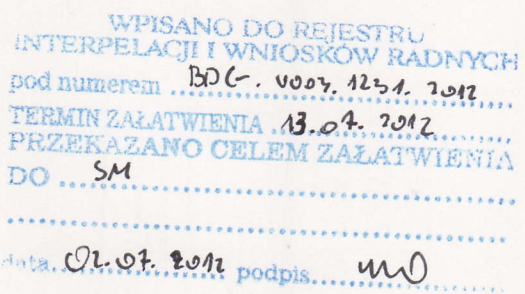 WPISANO DO REJESTRU
INTERPELACJI I WNIOSKÓW RADNYCH
pod numerem BDG-. 0003. 1231. 2012
TERMIN ZAŁATWIENIA 13.07. 2012
PRZEKAZANO CELEM ZAŁATWIENIA
DO SM
data 02.07. 2012 podpis